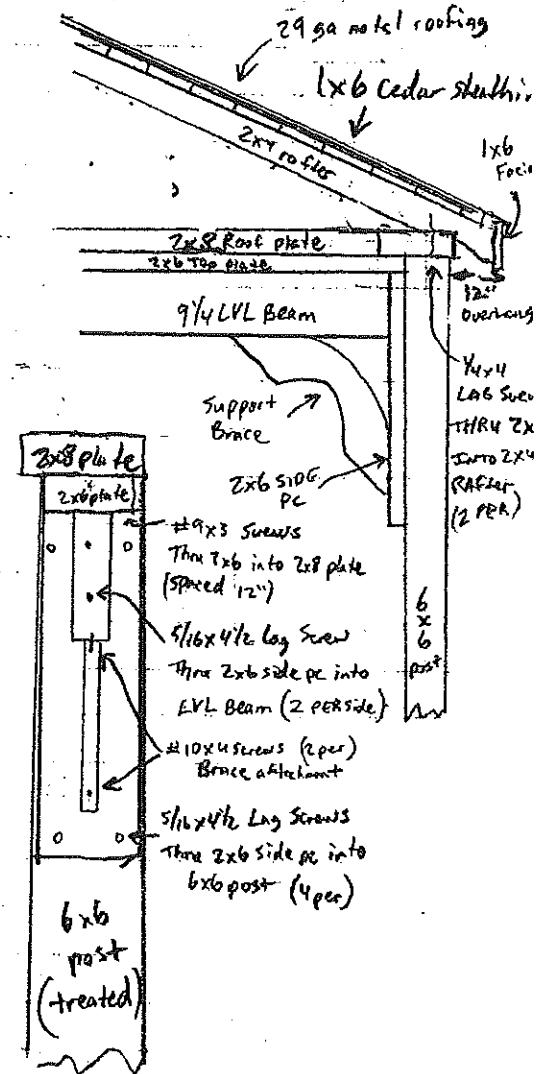 29 ga metal roofing
1x6 Cedar sheathin
1x6
2x4 rafter
2x8 Roof plate
2x6 Top plate
12"
Overhang
9 1/4 LVL Beam
1/4x4
LAG Scre
THRU 2x
INTO 2x4
RAFTER
(2 PER)
Support
Brace
2x6 SIDE
PC
6x6
post
2x8 plate
2x6 plate
#9x3 Screws
Thru 2x6 into 2x8 plate
(spaced 12")
5/16x4 1/2 Lag Screw
Thru 2x6 side pc into
LVL Beam (2 PER side)
#10x4 screws (2 per)
Brace attachment
5/16x4 1/2 Lag Screws
Thru 2x6 side pc into
6x6 post (4 per)
6x6
post
(treated)